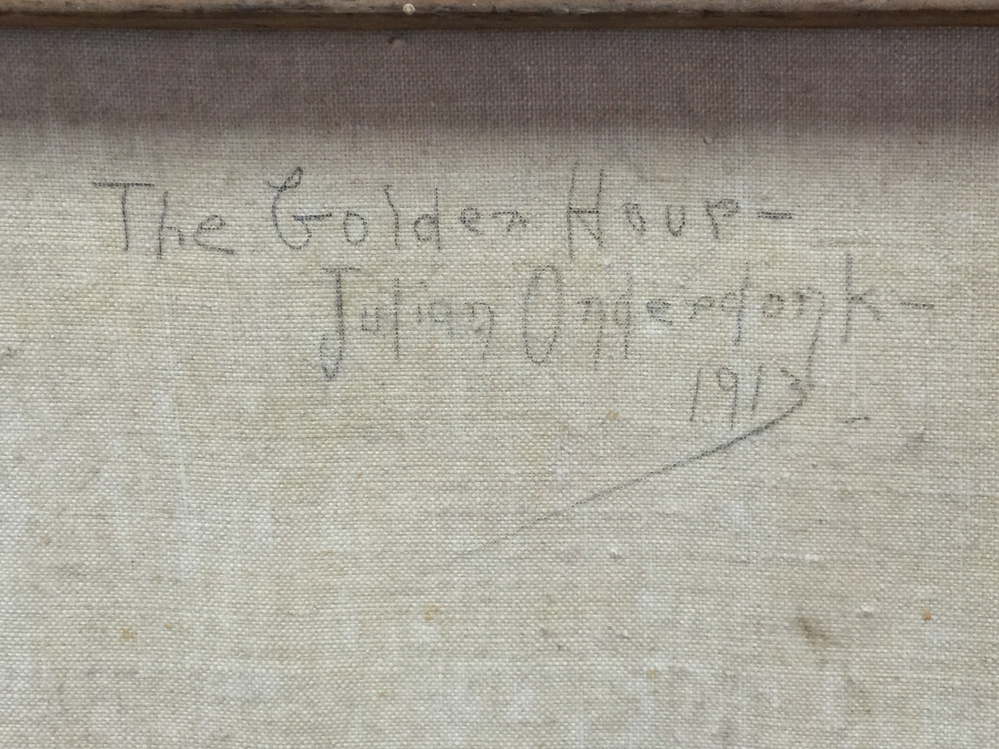 The Golden Hour-
Julian Onderdonk-
1913